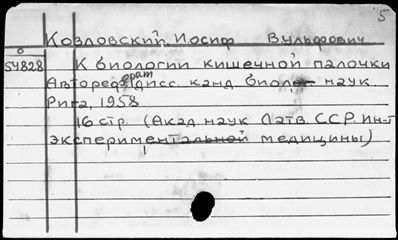 5
Козловский, Иосиф Вульфович
0
54828 К биологии кишечной палочки
Автореферат дисс. канд. биолог наук
Рига, 1958
16 стр. (Акад. наук Латв. ССР. Ин-т
экспериментальной медицины)